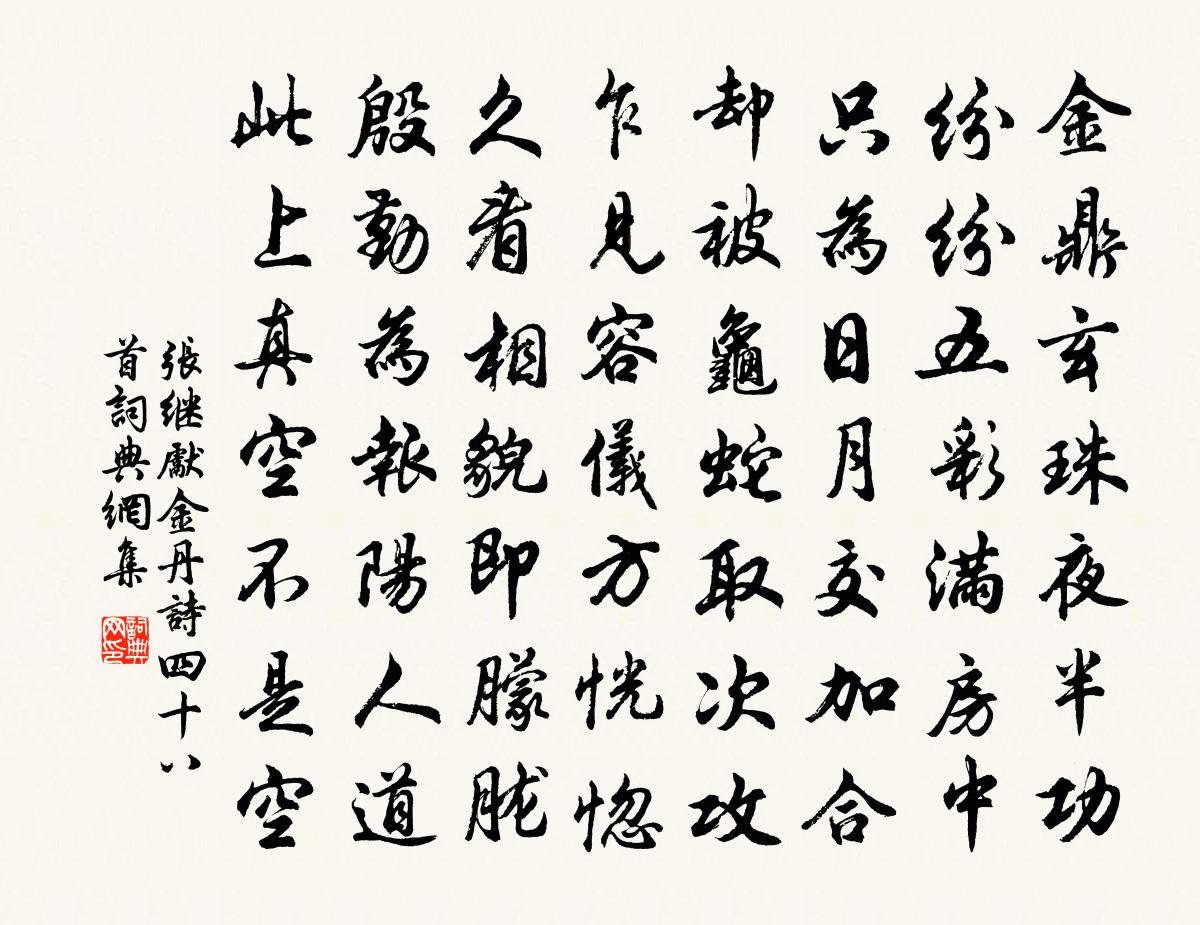 金鼎玄珠夜半功
紛紛五彩滿房中
只為日月交加合
却被龜蛇取次攻
乍見容儀方恍惚
久看相貌即朦朧
殷勤為報陽人道
此上真空不是空
張继獻金丹詩四十八
首詞典網集
詞典网印